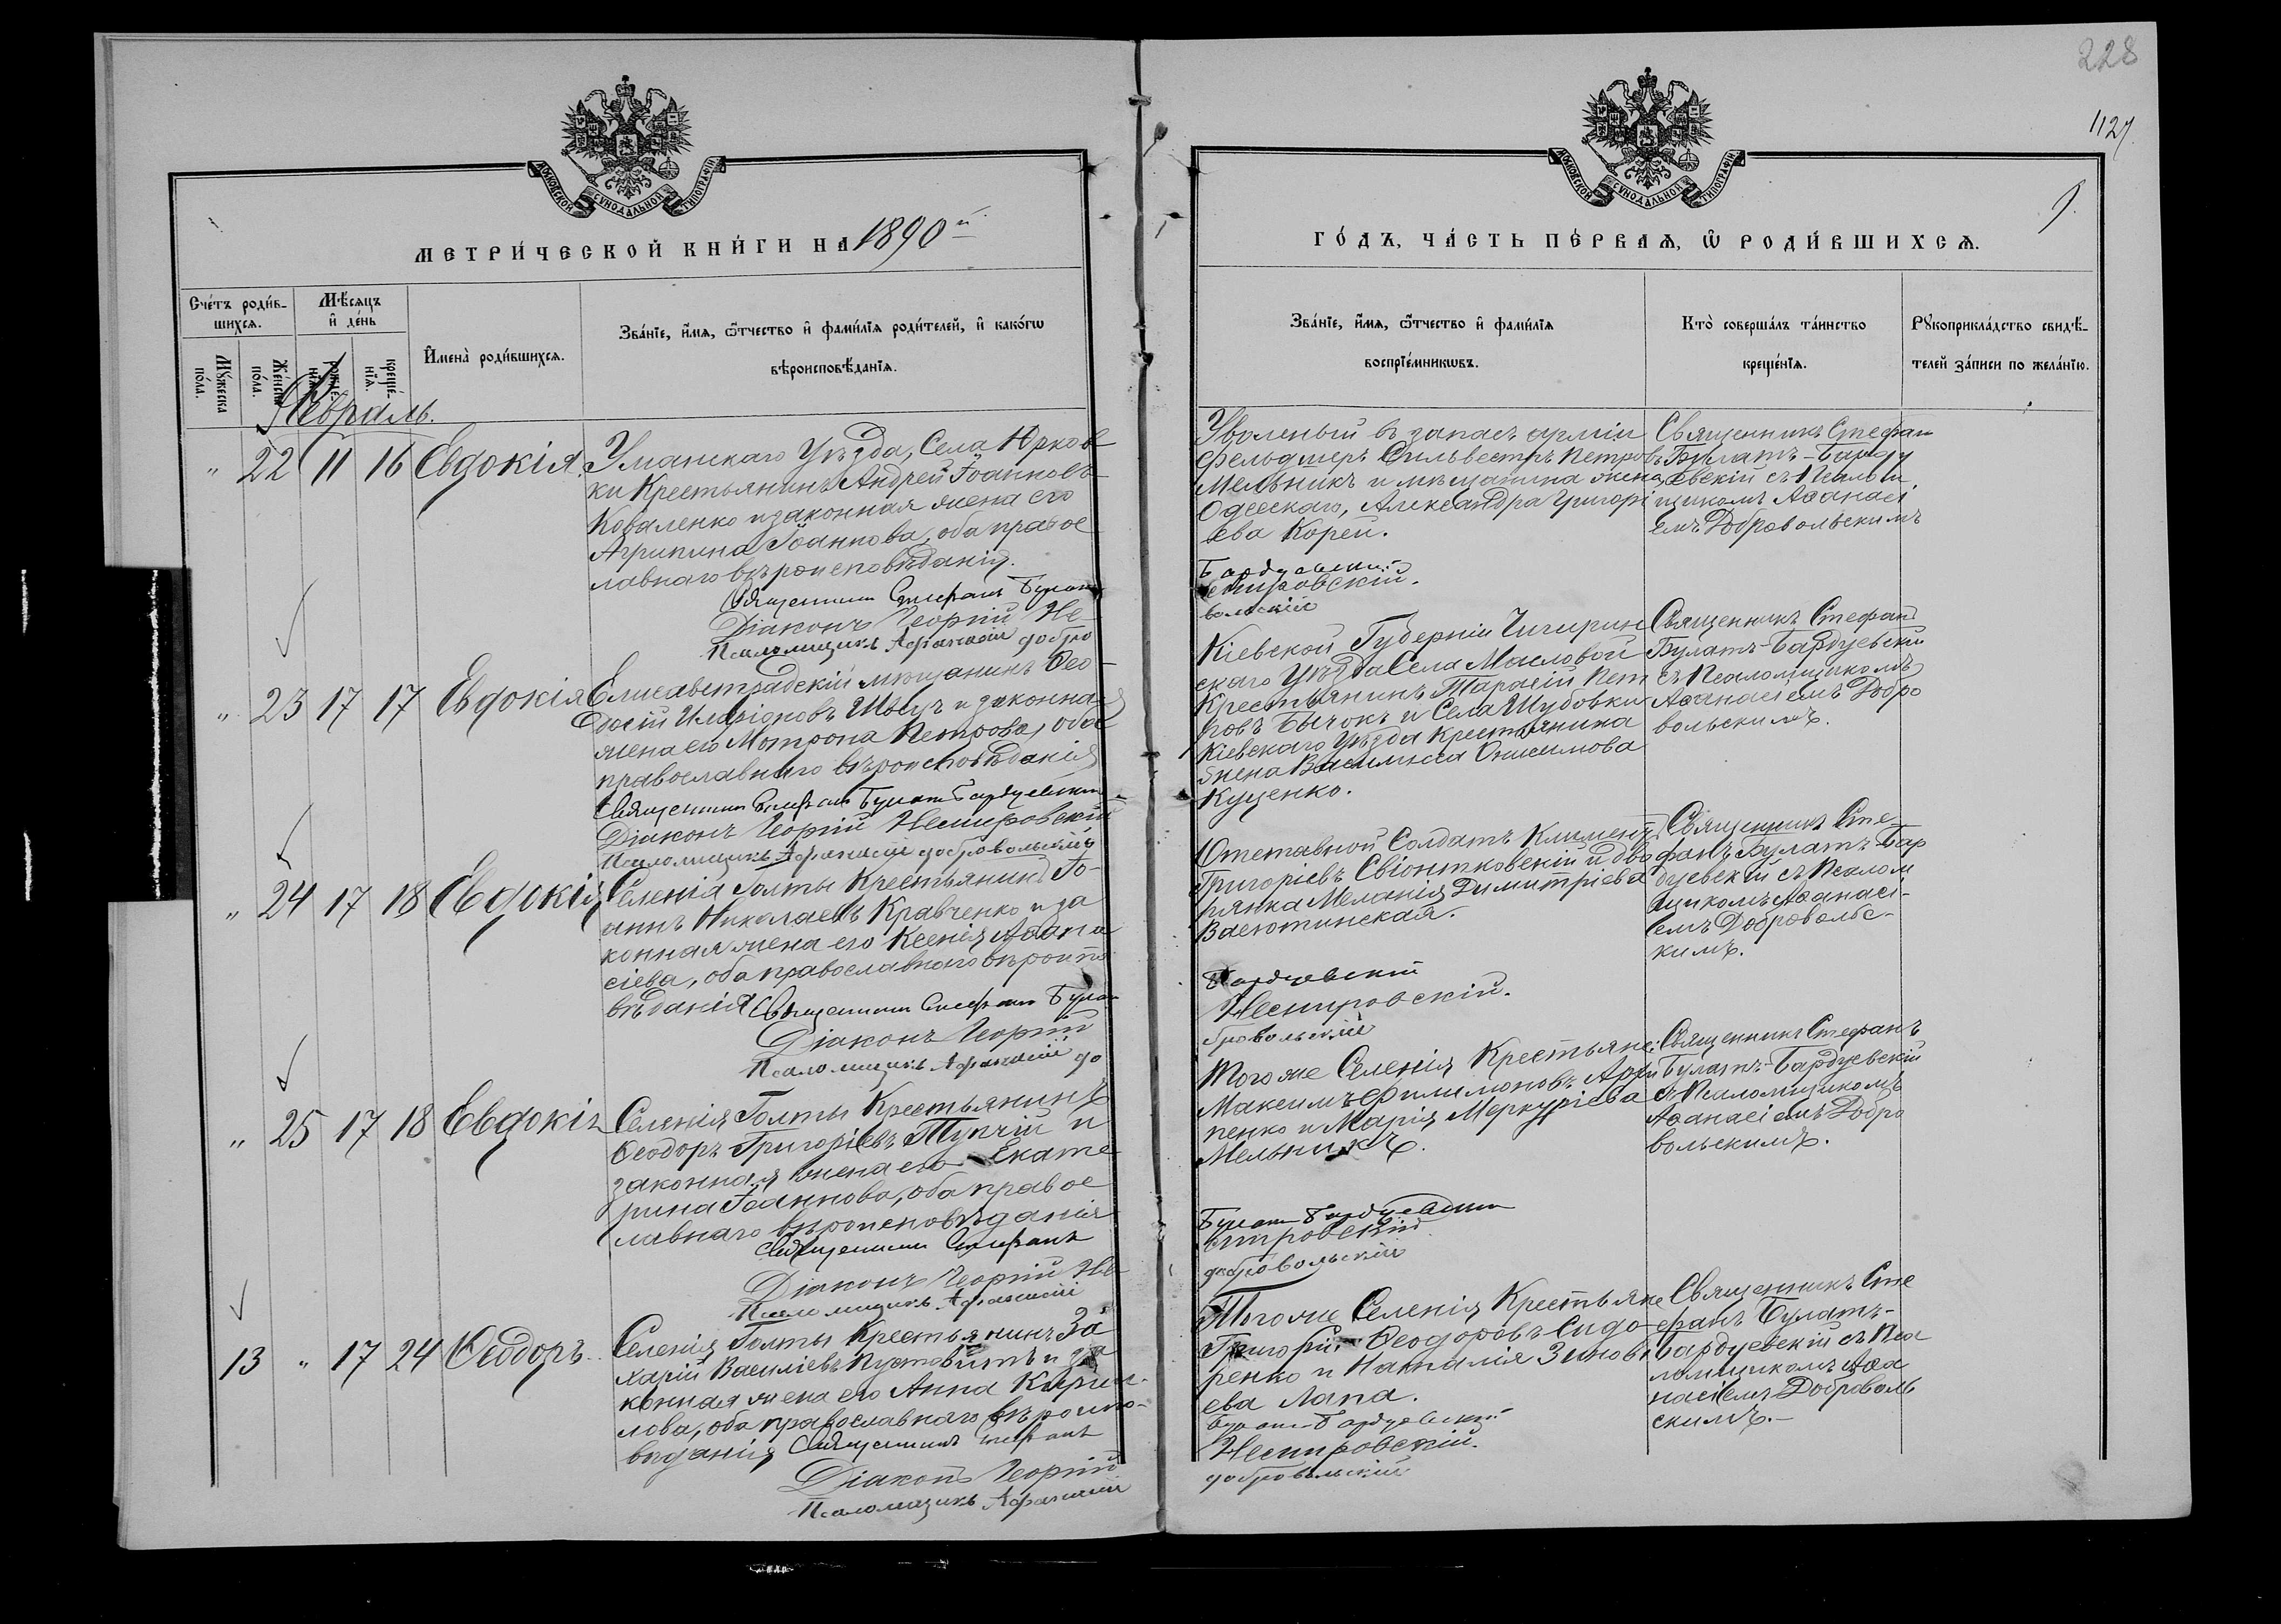 228
1127
9.
МОСКОВСКОЙ СѴНОДАЛЬНОЙ ТИПОГРАФІИ
МОСКОВСКОЙ СѴНОДАЛЬНОЙ ТИПОГРАФІИ
МЕТРИ́ЧЕСКОЙ КНИ́ГИ НА 1890й
ГО́ДЪ, ЧА́СТЬ ПЕ́РВАѦ, Ѽ РОДИ́ВШИХСѦ.
Сче́тъ роди́в-
шихсѧ.
Мꙋ́жеска по́ла.
Же́нска по́ла.
Мѣ́сѧцъ
и҆ де́нь
рожде́-
нїѧ.
креще́-
нїѧ.
И҆мена̀ роди́вшихсѧ.
Зва́нїе, и҆́мѧ, ѻ҆́тчество и҆ фами́лїѧ роди́телей, и҆ како́гѡ
вѣроисповѣ́данїѧ.
Зва́нїе, и҆́мѧ, ѻ҆́тчество и҆ фами́лїѧ
воспрїе́мникѡвъ.
Кто̀ соверша́лъ та́инство
креще́нїѧ.
Рꙋкоприкла́дство свидѣ́-
телей за́писи по жела́нїю.
Февраль.
" 22 11 16 Евдокія.
Уманскаго Уѣзда, Села Юрков
ки Крестьянинъ Андрей Іоанновъ
Коваленко и законная жена его
Агрипина Іоаннова, оба правос
лавнаго вѣроисповѣданія.
Священникъ Стефанъ Булатъ
Діаконъ Георгій Не-
Псаломщикъ Афанасій добро
Уволеный въ запасъ арміи
фельдшеръ Сильвестръ Петровъ
Мельникъ и мѣщанина жена
Одесскаго, Александра Григорі
ева Корей.
Бардуевскій
мировскій.
вольскій
Священникъ Стефан
Булатъ-Барду
евскій съ Псалом
щикомъ Аѳанасі
емъ Добровольскимъ
" 23 17 17 Евдокія
Елисаветрадскій мѣщанинъ Ѳео-
досій Иларіоновъ Швецъ и законная
жена его Мотрона Петрова, оба
православнаго вѣроисповѣданія
Священникъ Стефанъ Булатъ Бардуевскій
Діаконъ Георгій Немировскій
Псаломщикъ Афанасій добровольскій
Кіевской Губерніи Чигирин
скаго Уѣзда Села Масловой
Крестьянинъ Тарасій Пет
ровъ Бычокъ и Села Шубовки
Кіевскаго Уѣзда Крестьянина
жена Васи́лисса Онисимова
Куценко.
Священникъ Стефанъ
Булатъ-Бардуевскій
съ Псаломщикомъ
Аѳанасіемъ Добро
вольскимъ.
" 24 17 18 Евдокія
Селенія Голты Крестьянинъ Іо-
аннъ Николаевъ Кравченко и за
конная жена его Ксенія Аѳана
сіева, оба православнаго вѣроиспо
вѣданія
Священникъ Стефанъ Булат
Діаконъ Георгій
Псаломщикъ Афанасій до
Отставной Солдатъ Климентъ
Григоріевъ Свіонтковскій и дво
рянка Меланія Димитріева
Васютинская.
Бардуевскій
Немировскій.
бровольскій
Священникъ Сте-
фанъ Булатъ-Бар
дуевскій съ Псалом
щикомъ Аѳанасі-
емъ Добровольс-
кимъ.
" 25 17 18 Евдокія
Селенія Голты Крестьянинъ
Ѳеодоръ Григоріевъ Тупчій и
законная жена его Екате
рина Іоаннова, оба правос
лавнаго вѣроисповѣданія
Священникъ Стефанъ
Діаконъ Георгій Не-
Псаломщикъ Афанасій
Того же Селенія Крестьяне:
Максимъ Филимоновъ Архи
пенко и Марія Меркуріева
Мельникъ.
Булатъ Бардуевскій
мировскій
добровольскій
Священникъ Стефанъ
Булатъ-Бардуевскій
съ Псаломщикомъ
Аѳанасіемъ Добро
вольскимъ.
13 " 17 24 Ѳеодоръ.
Селенія Голты Крестьянинъ За
харій Василіевъ Пустовитъ и за
конная жена его Анна Кирил-
лова, оба православнаго вѣроиспо-
вѣданія
Священникъ Стефанъ
Діаконъ Георгій
Псаломщикъ Афанасій
Того же Селенія Крестьяне
Григорій Ѳеодоровъ Сидо-
ренко и Наталія Зинові
ева Лапа.
Булатъ-Бардуевскій
Немировскій.
добровольскій
Священникъ Сте
фанъ Булатъ-
Бардуевскій съ Пса
ломщикомъ Аѳа
насіемъ Доброволь
скимъ.-